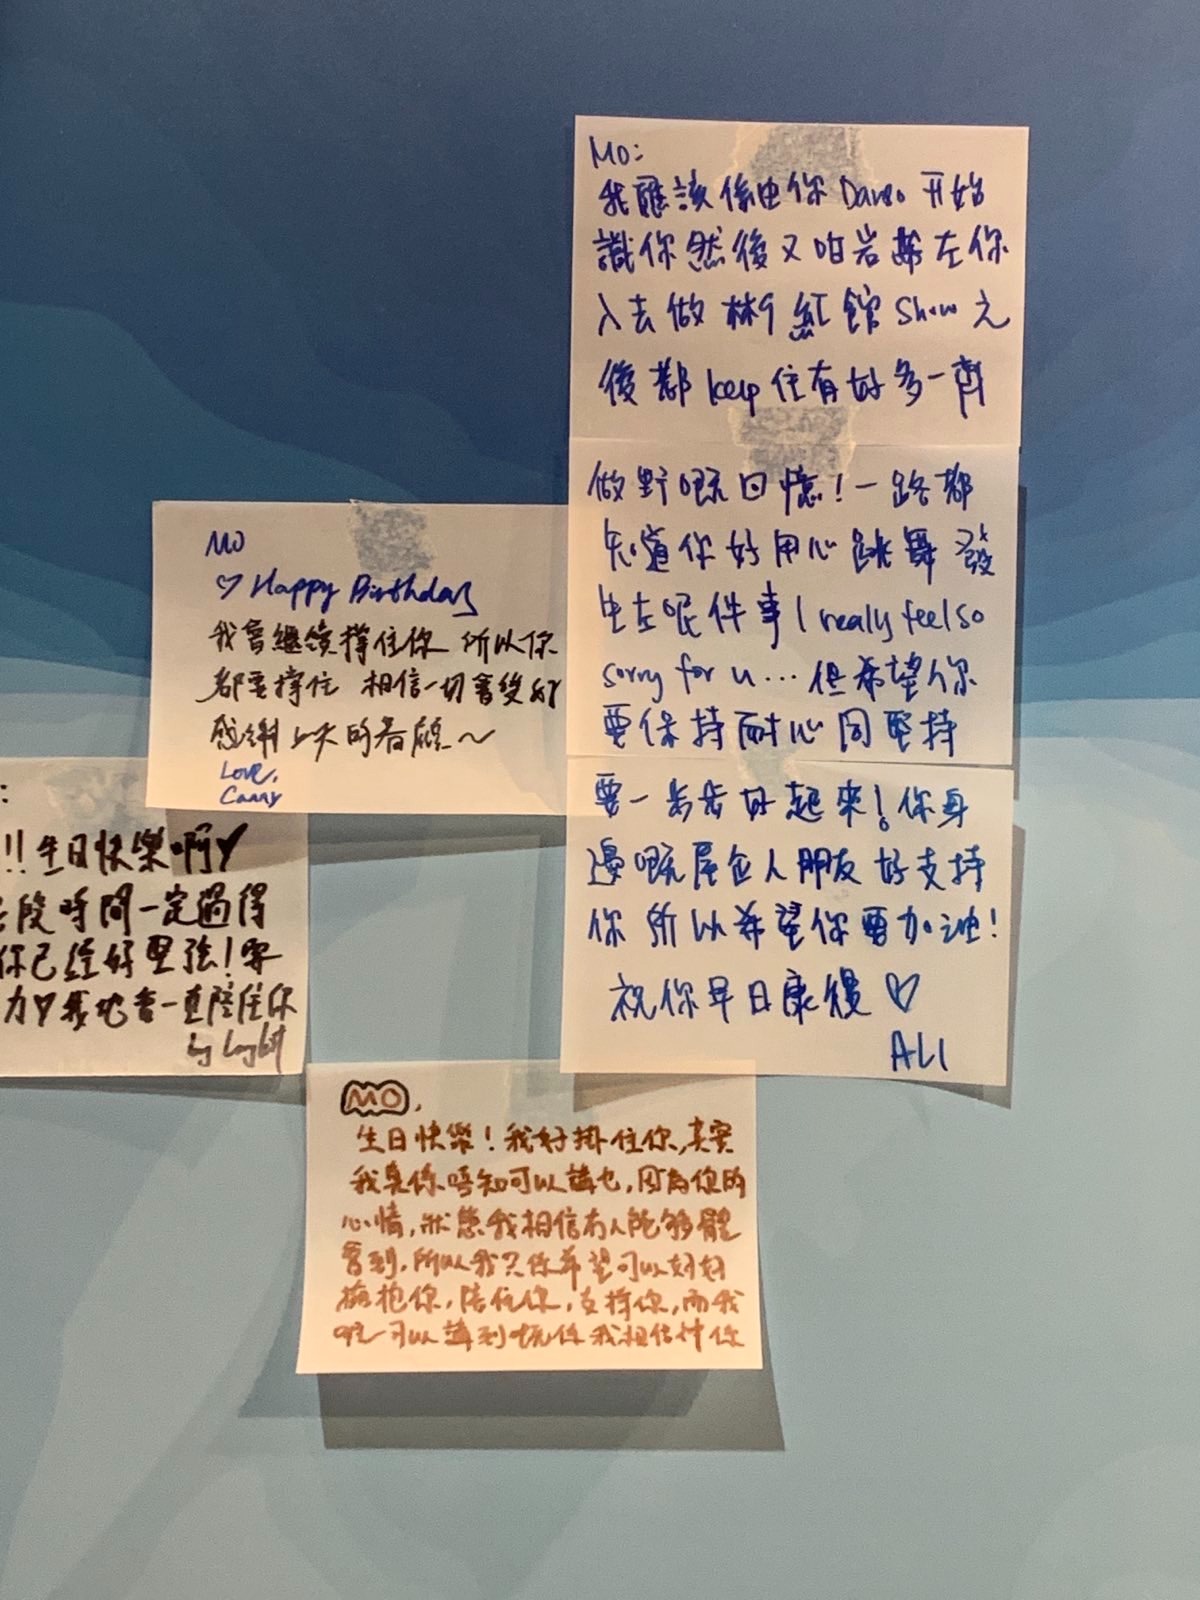 MO:
我應該係由你 Dance 開始
識你然後又咁岩幫左你
入去做 紅館 Show 之
後都 keep 住有好多一齊
做野嘅回憶！一路都
知道你好用心跳舞 發
生左呢件事 I realy feel so
sorry for u... 但希望你
要保持耐心同堅持
要一步步好起來！你身
邊嘅屋企人朋友好支持
你所以希望你要加油！
祝你早日康復 ♡
ALI
MO
♡ Happy Birthday
我會繼續撐住你 所以你
都要撐住 相信一切會變好
感謝上天的眷顧～
Love,
Canny
:
!! 生日快樂啊♡
段時間一定過得
你已經好堅強！要
力♡我地會一直陪住你
by
MO,
生日快樂！我好掛住你，其實
我真係唔知可以講乜，因為你的
心情，狀態我相信冇人能夠體
會到，所以我只係希望可以好好
擁抱你，陪住你，支持你，而我
唯一可以講到嘅係我相信 你